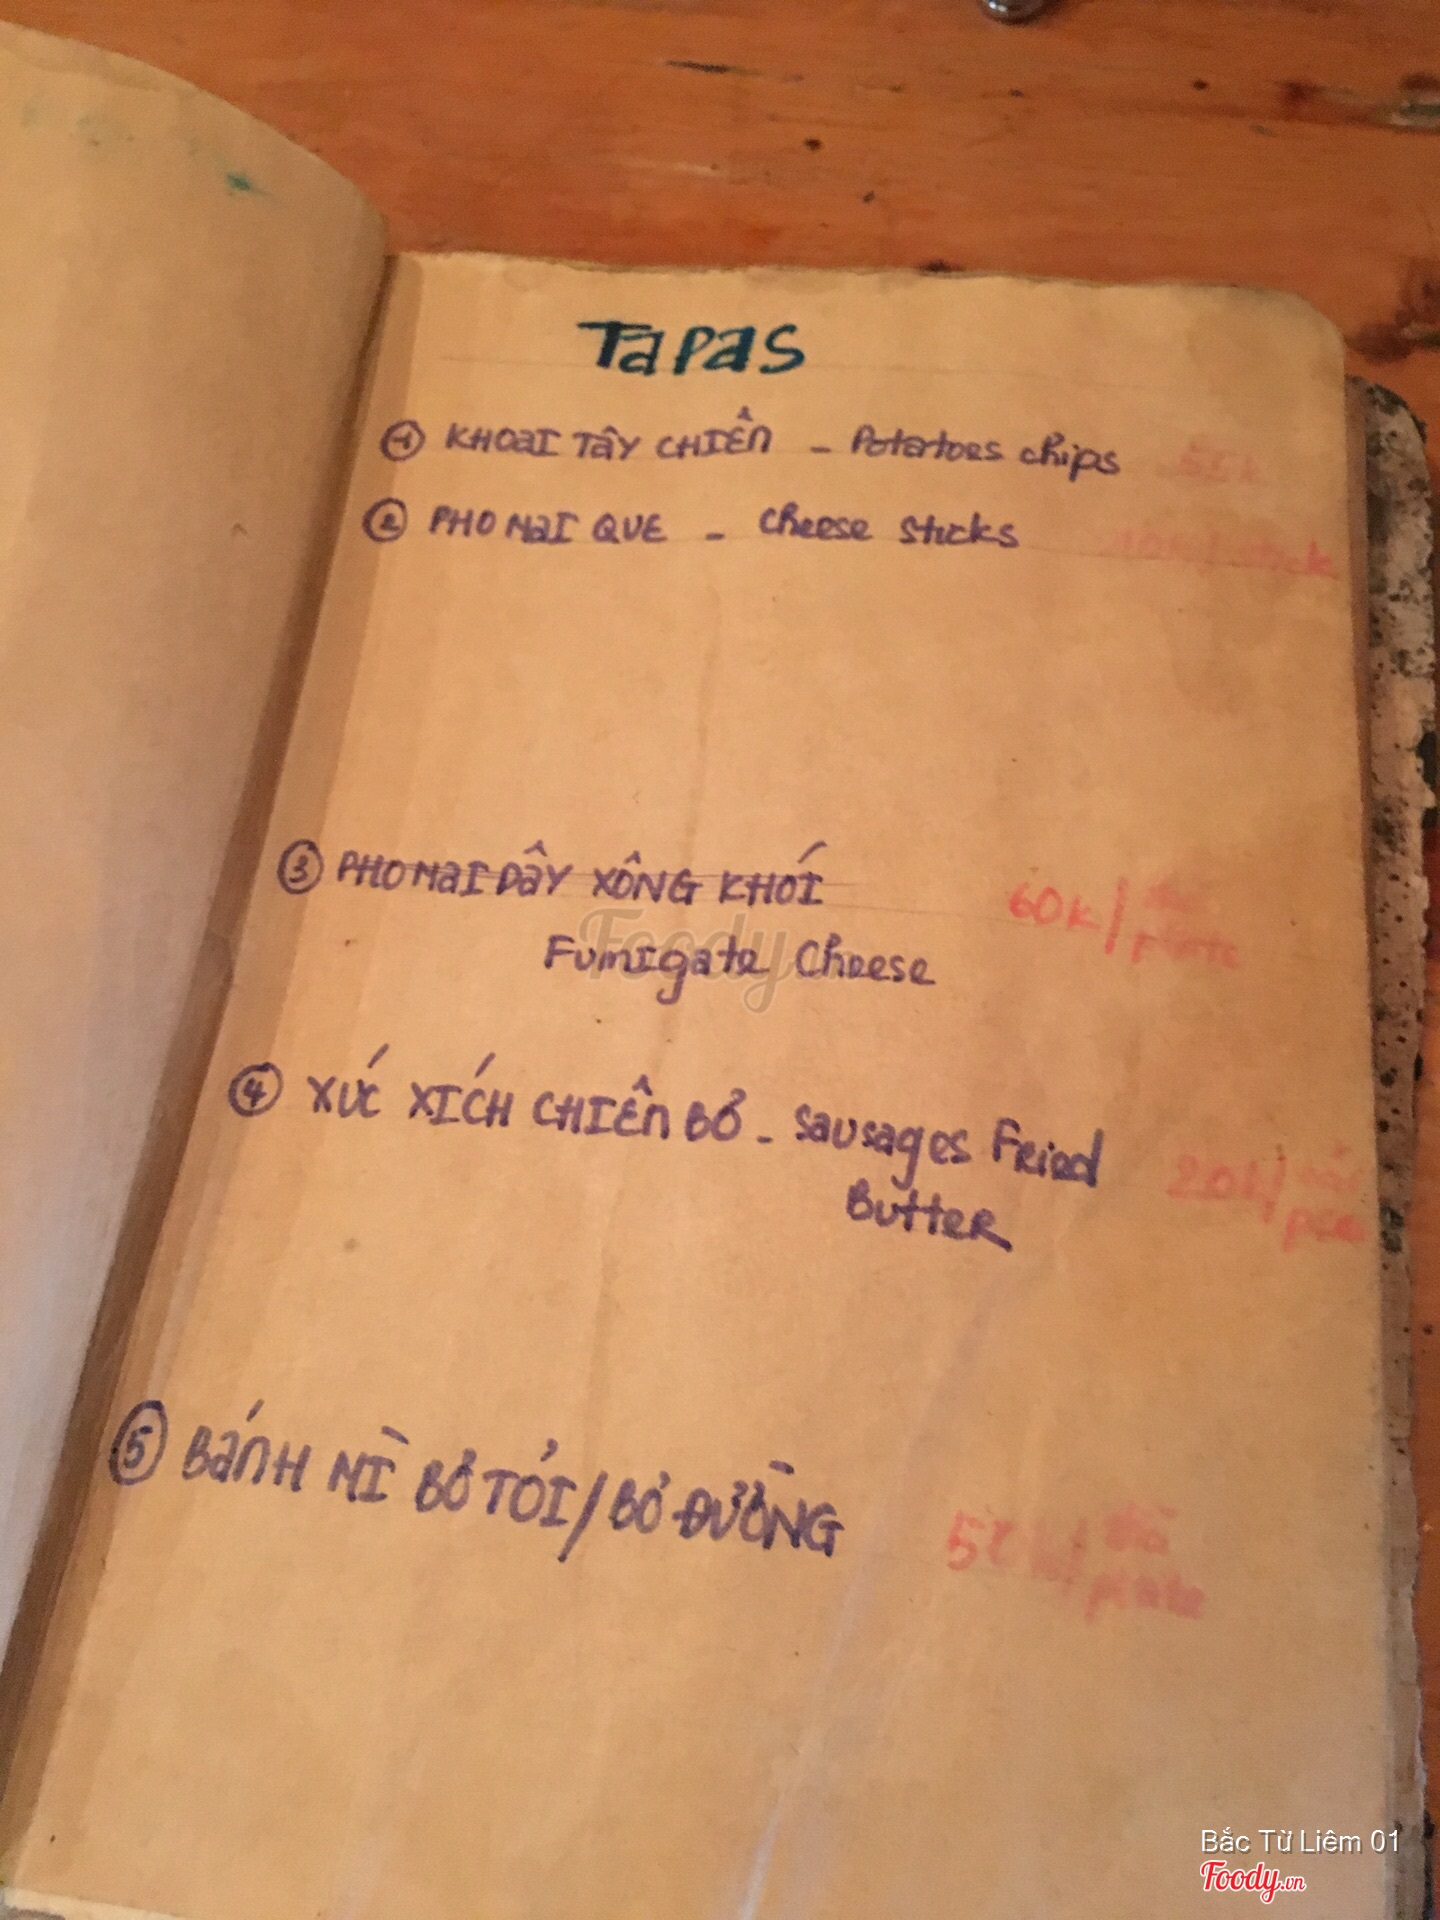 TAPAS
1 KHOAI TÂY CHIÊN - Potatoes chips 55k
2 PHO MAI QUE - Cheese sticks stick
3 PHO MAI DÂY XÔNG KHÓI 60k/
Fumigate Cheese plate
4 XÚC XÍCH CHIÊN BƠ - Sausages Fried 20k/
Butter
5 BÁNH MÌ BƠ TỎI/BƠ ĐƯỜNG
plate
Foody
Bắc Từ Liêm 01
Foody.vn